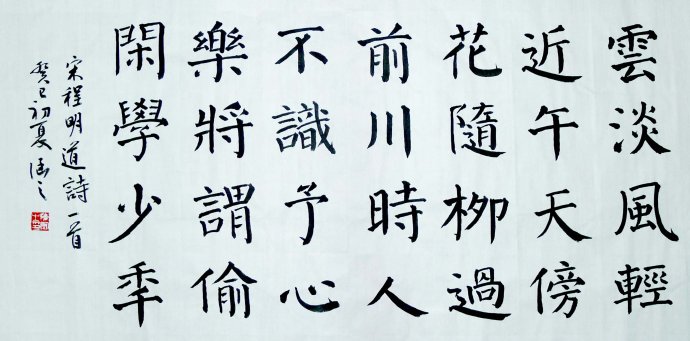 雲淡風輕
近午天傍
花隨柳過
前川時人
不識予心
樂將謂偷
閑學少年
宋程明道詩一首
癸巳初夏